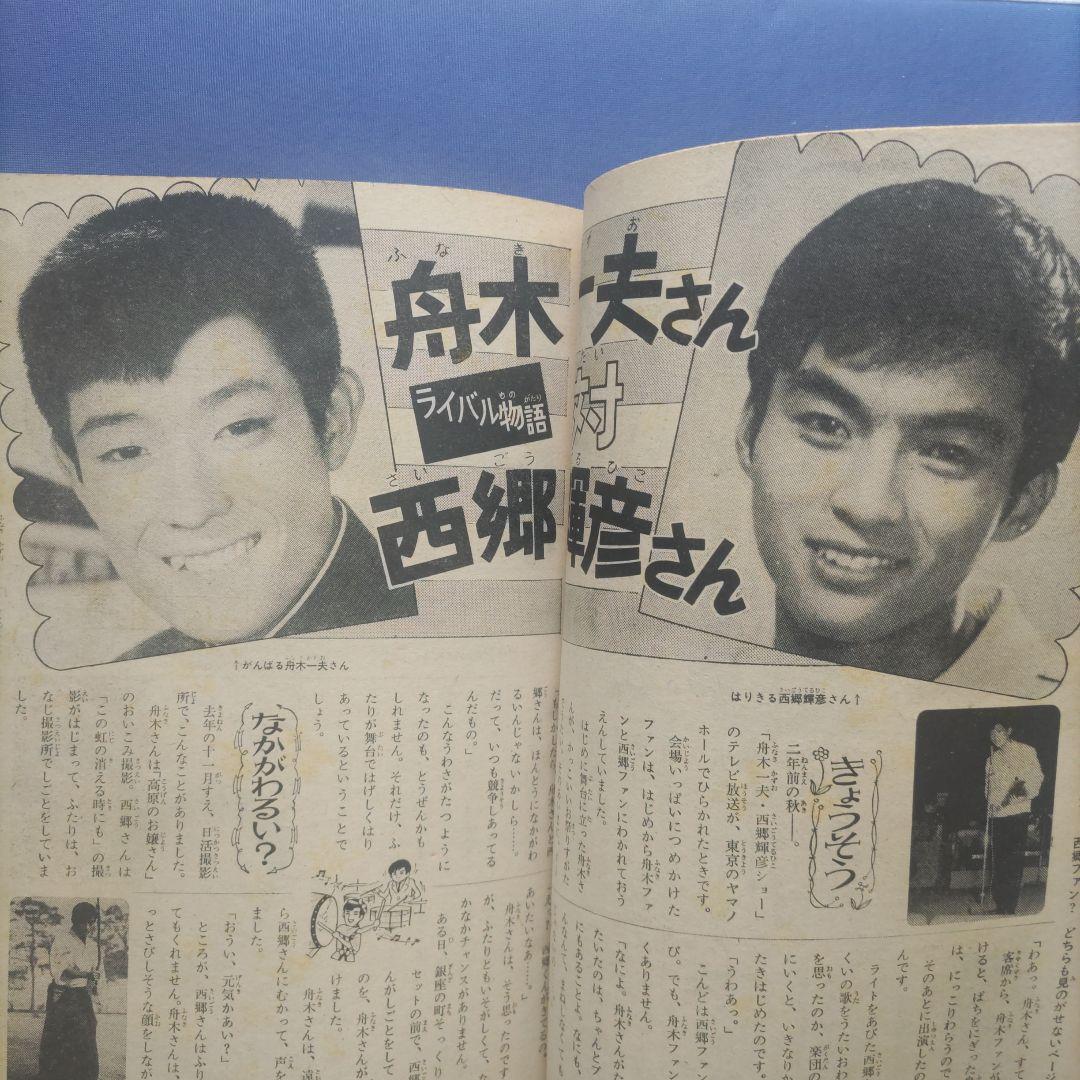 舟木一夫さん
対
西郷輝彦さん
ライバル物語
↑がんばる舟木一夫さん
はりきる西郷輝彦さん↑
西郷ファン?
どちらも見のがせないページ
きょうそう
二年前の秋――。
「舟木一夫・西郷輝彦ショー」
のテレビ放送が、東京のヤマノ
ホールでひらかれたときです。
会場いっぱいにつめかけた
ファンは、はじめから舟木ファ
ンと西郷ファンにわかれておう
えんしていました。
はじめに舞台に立った舟木さ
んが、かっこいいお祭りすがた
「わあっ。舟木さん、すて
客席から、舟木ファンが
けると、ばちをにぎった
は、にっこりわらうので
んです。
そのあとに出演したの
ライトをあびた西郷
くいの歌をうたいおわ
を思ったのか、楽団の
にいくと、いきなりか
たきはじめたのです。
「うわあっ。」
こんどは西郷ファン
び。でも、舟木ファン
くありません。
「なによ。舟木さんがた
たいたのは、ちゃんとプ
にもあることよ。なにも、
んなて、まねしなくても
郷さんは、ほんとうになかがわ
るいんじゃないかしら……。
だって、いつも競争しあってる
んだもの。」
こんなうわさがたつように
なったのも、とうぜんかも
しれません。それだけ、ふ
たりが舞台ではげしくはり
あっているということで
しょう。
なかがわるい?
去年の十一月すえ、日活撮影
所で、こんなことがありました。
舟木さんは「高原のお嬢さん」
のおいこみ撮影。西郷さんは
「この虹の消える時にも」の撮
影がはじまって、ふたりは、お
なじ撮影所でしごとをしていま
した。
あいたいなあ……。」
舟木さんは、そう思ったのです
が、ふたりともいそがしくて、な
かなかチャンスがありません。
ある日、銀座の町そっくり
セットの前で、西郷さんが
んがしごとをし
のを、舟木さんが
けました。
舟木さんは、遠
ら西郷さんにむかって、声を
ました。
「おうい、元気かあい?」
ところが、西郷さんはふり
てもくれません。舟木さんは、
っとさびしそうな顔をしなが